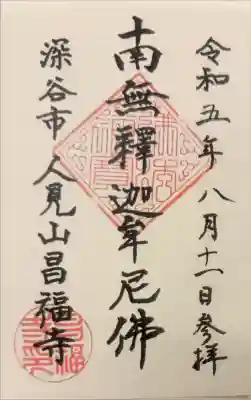 令和五年八月十一日参拝
南無釋迦牟尼佛
深谷市人見山昌福寺